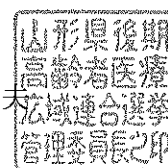 山形県後期
高齢者医療
広域連合選挙
管理委員